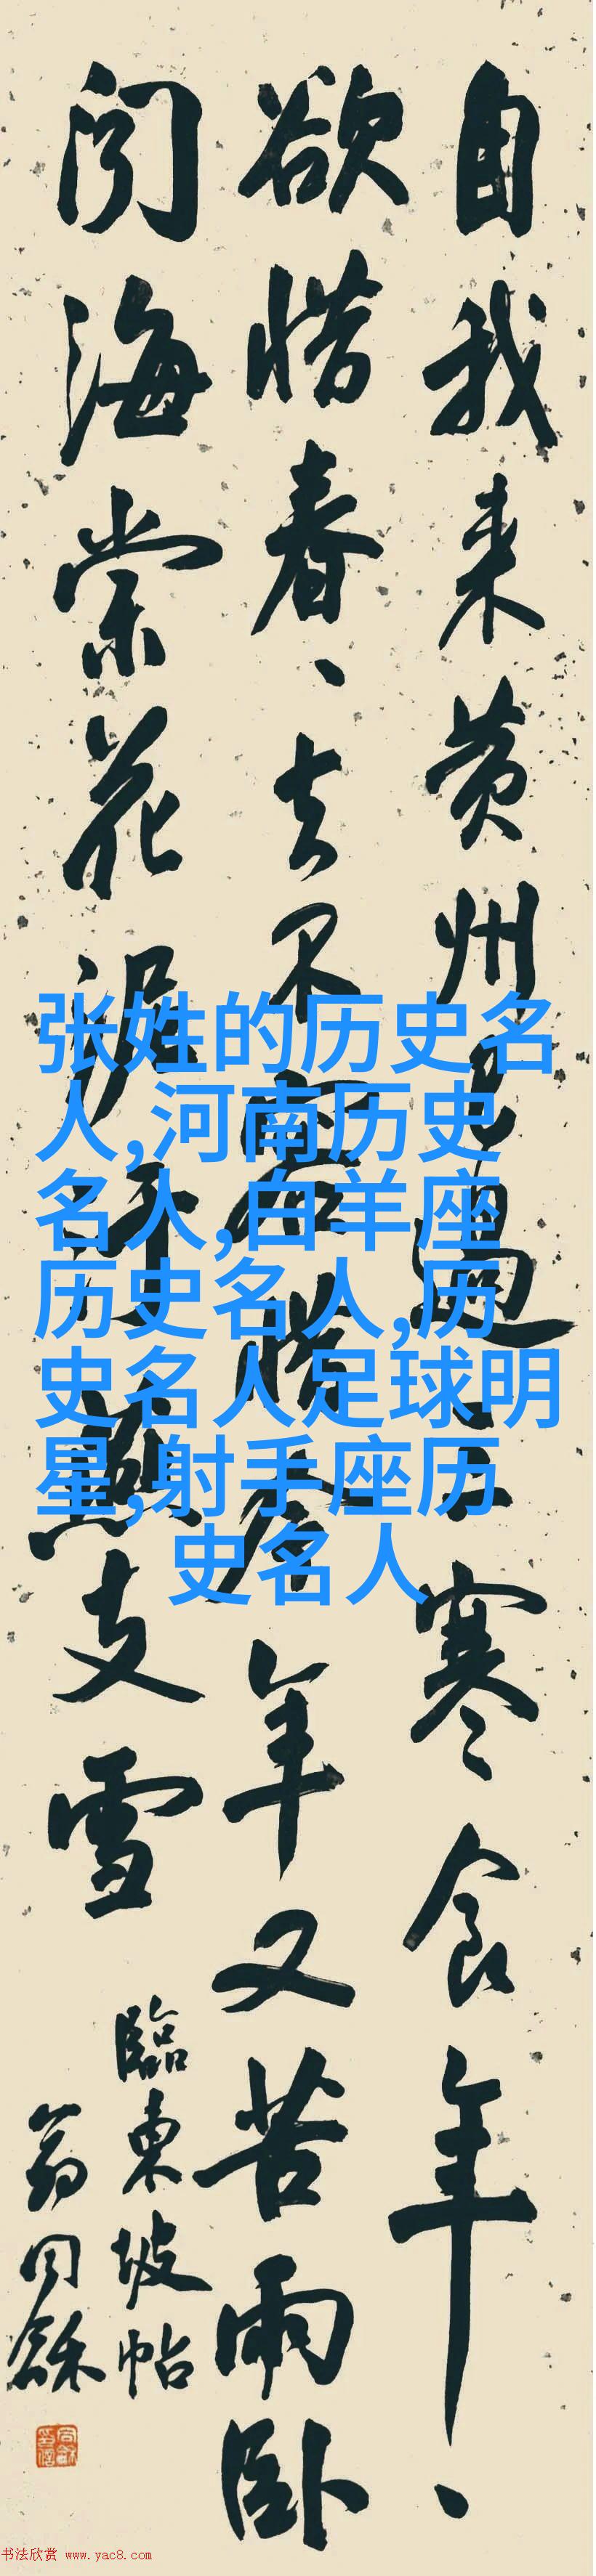 自我来黄州已過三寒食年、
欲惜春、去不容惜今年又苦雨卧
闻海棠花泥汙燕支雪
臨東坡帖
翁同龢
张姓的历史名
人,河南历史
名人,白羊座
历史名人,历
史名人足球明
星,射手座历
史名人
书法欣赏 www.yac8.com